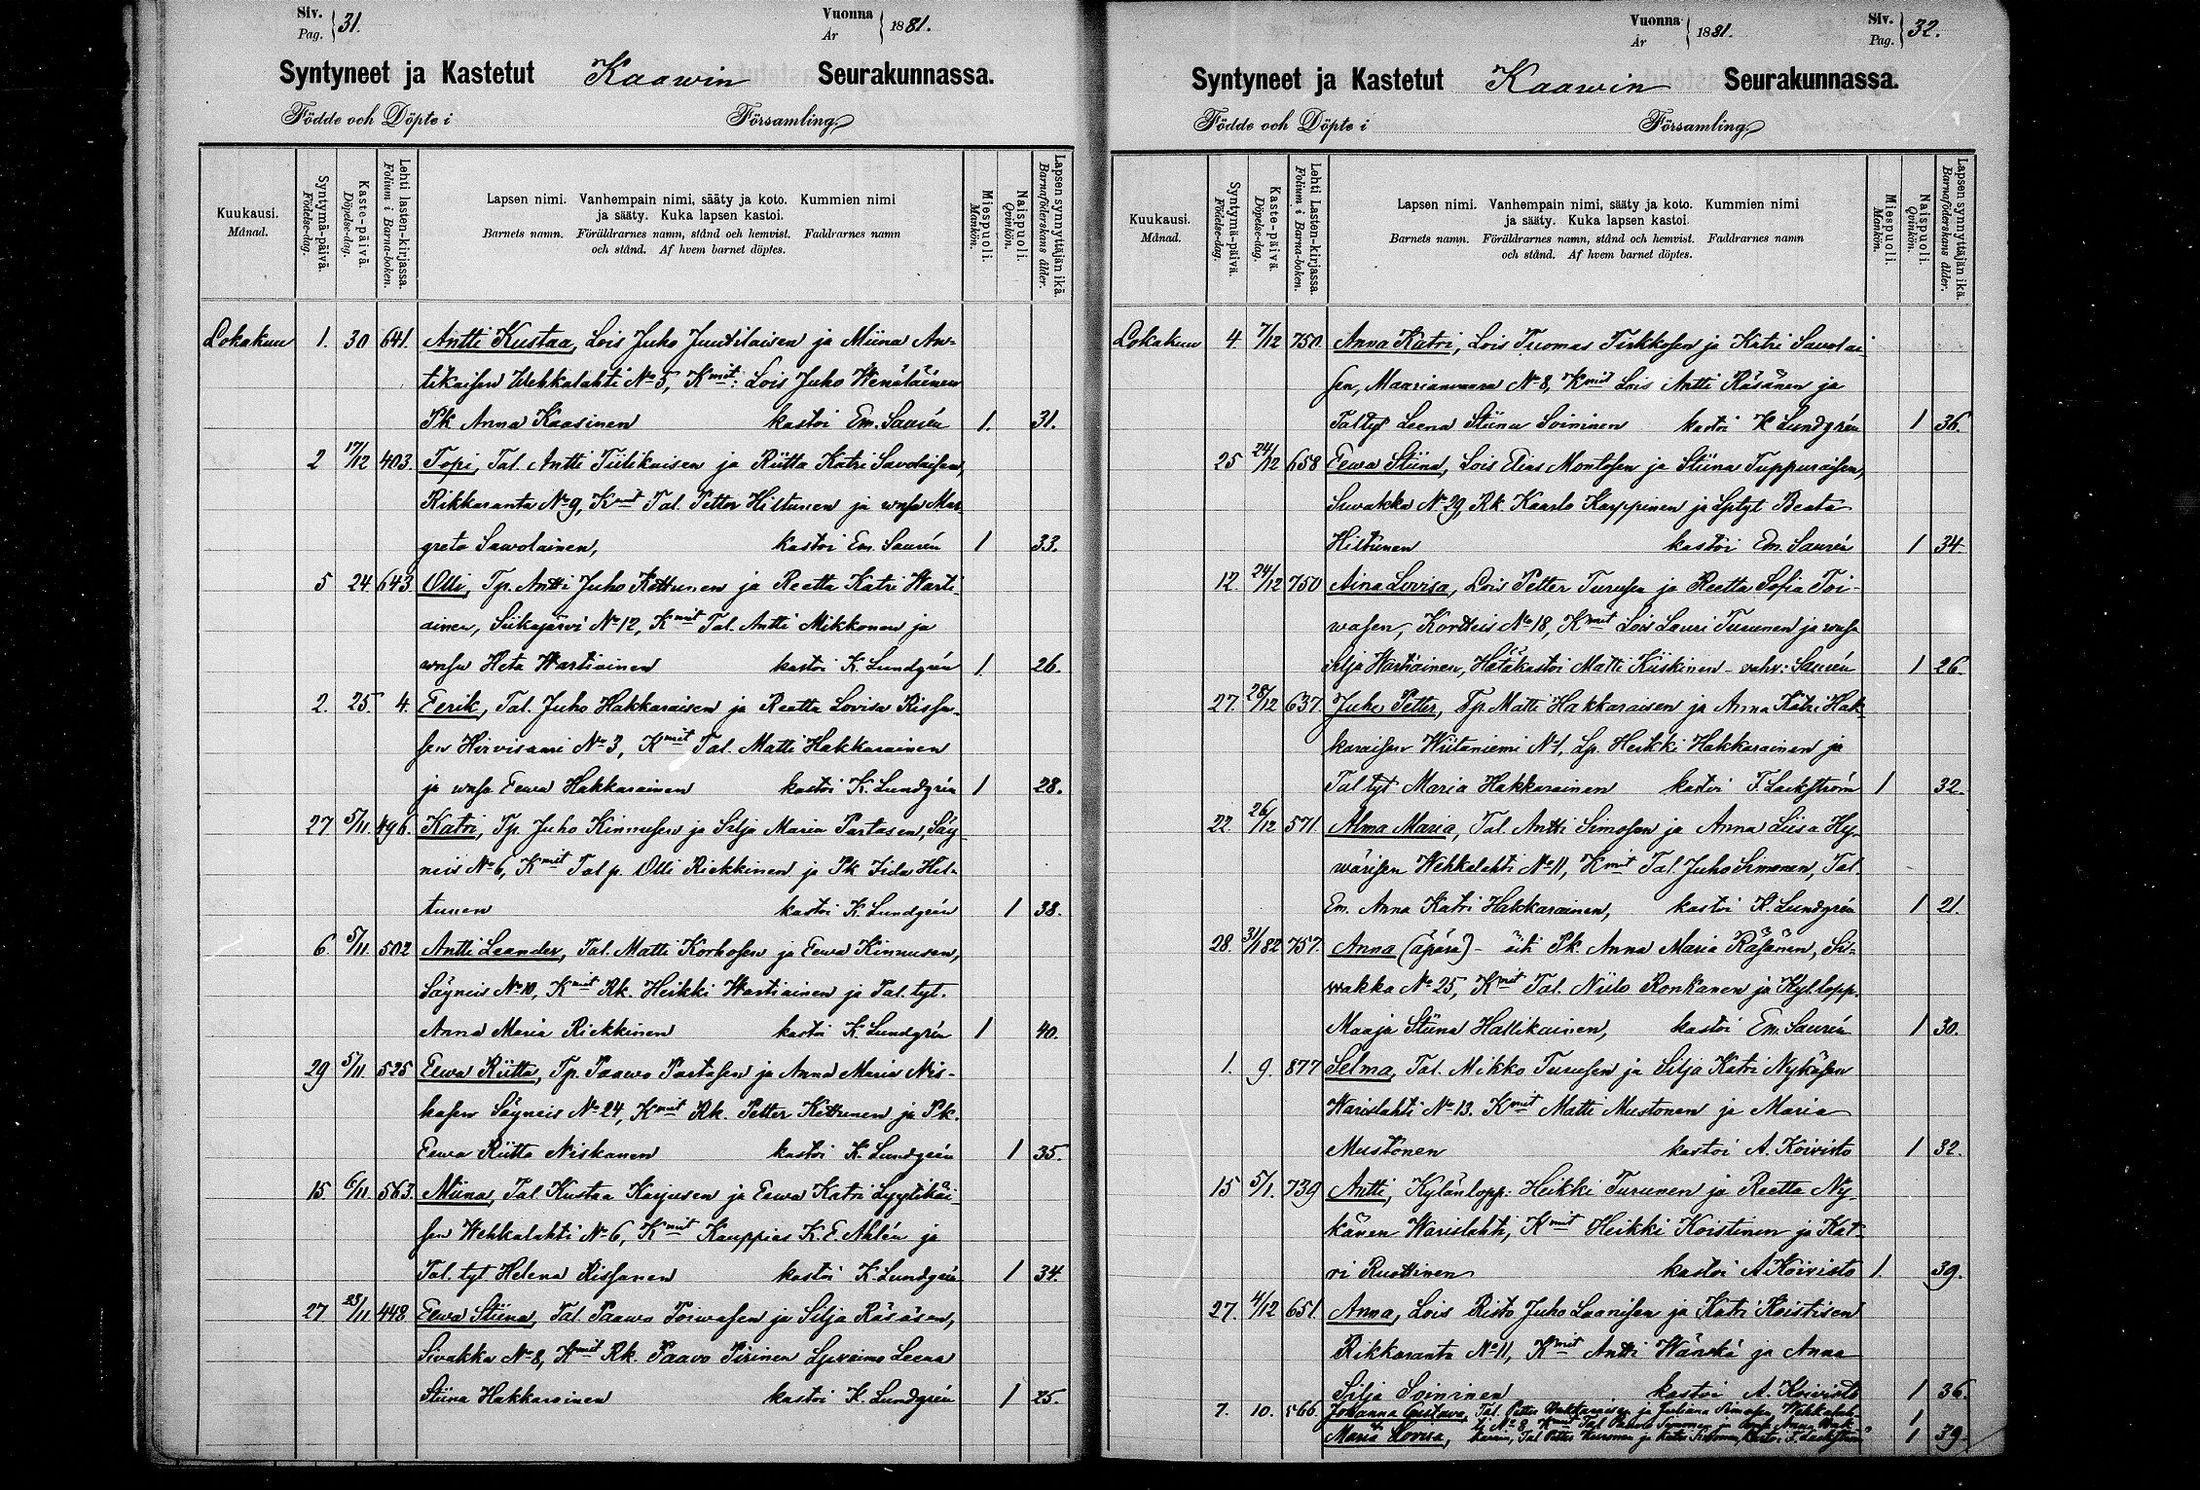 Siv. Pag. 31. Vuonna År 1881.
Syntyneet ja Kastetut Kaawin Seurakunnassa.
Födde och Döpte i Församling
Kuukausi. Månad.
Syntymä-päivä. Födelse-dag.
Kaste-päivä. Döpelse-dag.
Lehti lasten-kirjassa. Folium i Barna-boken.
Lapsen nimi. Vanhempain nimi, sääty ja koto. Kummien nimi
ja sääty. Kuka lapsen kastoi.
Barnets namn. Föräldrarnes namn, stånd och hemvist. Faddrarnes namn
och stånd. Af hvem barnet döptes.
Miespuoli. Mankön.
Naispuoli. Qvinkön.
Lapsen synnyttäjän ikä. Barnaföderskans ålder.
Lokakuu 1. 30 641. Antti Kustaa, Lois Juho Juutilaisen ja Miina An-
tikaisen Wehkalahti No 5, Kmit: Lois Juho Wenäläinen
Pk Anna Kaasinen kastoi Em. Saurén 1. 31.
2 17/12 403. Topi, Tal. Antti Tiilikaisen ja Riitta Katri Savolaisen,
Rikkaranta No 9, Kmit Tal. Petter Hiltunen ja wnsa Mar-
greta Sawolainen, kastoi Em. Saurén 1 33.
5 24 643. Olli, Tp. Antti Juho Kettunen ja Reetta Katri Warti-
ainen, Siikajärvi No 12, Kmit Tal. Antti Mikkonen ja
wnsa Heta Wartiainen kastoi K. Lundgrén 1. 26.
2. 25. 4. Eerik, Tal. Juho Hakkaraisen ja Reetta Lovisa Rissa-
sen Hirvisaari No 3, Kmit Tal. Matti Hakkarainen
ja wnsa Eewa Hakkarainen kastoi K. Lundgrén 1 28.
27 5/11 496. Katri, Tp. Juho Kinnusen ja Silja Maria Partasen, Säy-
neis No 6, Kmit Tal p. Olli Riekkinen ja Pk Iida Hil-
tunen kastoi K. Lundgrén 1 38.
6. 5/11 502 Antti Leander, Tal. Matti Korhosen ja Eewa Kinnusen,
Säyneis No 10, Kmit Rk. Heikki Wartiainen ja Tal. tyt.
Anna Maria Riekkinen kastoi K. Lundgrén 1 40.
29 5/11 525 Eewa Riitta, Tp. Paawo Partasen ja Anna Maria Nis-
kasen Säyneis No 24, Kmit Rk. Petter Kettunen ja Pk.
Eewa Riitta Niskanen kastoi K. Lundgrén 1 35.
15 6/11 563. Miina, Tal. Kustaa Karjusen ja Eewa Katri Lyytikäi-
sen Wehkalahti No 6, Kmit Kauppias K. E. Ahlén ja
Tal. tyt Helena Rissanen kastoi K. Lundgrén 1 34.
27 23/11 448 Eewa Stiina, Tal. Paawo Toiwasen ja Silja Räsäsen,
Sivakka No 8, Kmit Rk. Paavo Pirinen Lsvaimo Leena
Stiina Hakkarainen kastoi K. Lundgrén 1 25.
Vuonna År 1881. Siv. Pag. 32.
Syntyneet ja Kastetut Kaawin Seurakunnassa.
Födde och Döpte i Församling
Kuukausi. Månad.
Syntymä-päivä. Födelse-dag.
Kaste-päivä. Döpelse-dag.
Lehti Lasten-kirjassa. Folium i Barna-boken.
Lapsen nimi. Vanhempain nimi, sääty ja koto. Kummien nimi
ja sääty. Kuka lapsen kastoi.
Barnets namn. Föräldrarnes namn, stånd och hemvist. Faddrarnes namn
och stånd. Af hvem barnet döptes.
Miespuoli. Mankön.
Naispuoli. Qvinkön.
Lapsen synnyttäjän ikä. Barnaföderskans ålder.
Lokakuu 4. 7/12 750. Anna Katri, Lois Tuomas Tirkkosen ja Katri Sawolai-
sen, Maarianvaara No 8, Kmit Lois Antti Räsänen ja
Tal tyt Leena Stiina Soininen kastoi K Lundgrén 1 36.
25 24/12 658 Eewa Stiina, Lois Elias Montosen ja Stiina Tuppuraisen,
Siwakka No 29, Rk. Kaarlo Karppinen ja Lptyt Beata
Hiltunen kastoi Em. Saurén 1 34
12. 24/12 750 Aina Lovisa, Lois Petter Turusen ja Reetta Sofia Toi-
wasen, Kortteis No 18, Kmit Lois Lauri Turunen ja wnsa
Silja Wartiainen, Hätäkastoi Matti Kiiskinen - vahv: Saurén 1 26.
27. 28/12 637. Juho Petter, Tp. Matti Hakkaraisen ja Anna Katri Hak-
karaisen Wiitaniemi No 1, Lp. Heikki Hakkarainen ja
Tal tyt Maria Hakkarainen kastoi F. Lackström 1 32.
22. 26/12 571. Alma Maria, Tal. Antti Simosen ja Anna Liisa Hy-
wärisen Wehkalahti No 11, Kmit Tal. Juho Simonen, Tal.
Em. Anna Katri Hakkarainen, kastoi K. Lundgrén 1 21.
28. 31/1 82 757. Anna (äpärä) - äiti Pk. Anna Maria Räsänen, Si-
wakka No 25, Kmit Tal. Niilo Ronkanen ja Kyl. lopp.
Maaja Stiina Hallikainen, kastoi Em. Saurén 1 30.
1. 9. 877 Selma, Tal. Mikko Turusen ja Silja Katri Nykäsen
Warislahti No 13. Kmit Matti Mustonen ja Maria
Mustonen kastoi A. Koivisto 1 32.
15 5/1. 739 Antti, Kylänlopp: Heikki Turunen ja Reetta Ny-
känen Warislahti, Kmit Heikki Koistinen ja Kat-
ri Ruottinen kastoi A Koivisto 1. 39.
27. 4/12 651. Anna, Lois Risto Juho Laanisen ja Katri Koistisen
Rikkaranta No 11, Kmit Antti Wänskä ja Anna
Silja Soininen kastoi A. Koivisto 1 36.
7. 10. 566 Johanna Gustava, Tal. Petter Hakkaraisen ja Juliana Simosen Wehkalah- 1
Maria Lovisa, ti No 8, Kmit Tal. Paavo Simonen ja Anna Hak- 1 39
karainen, Tal. Petter ja Katri Simonen, kastoi F. Lackström